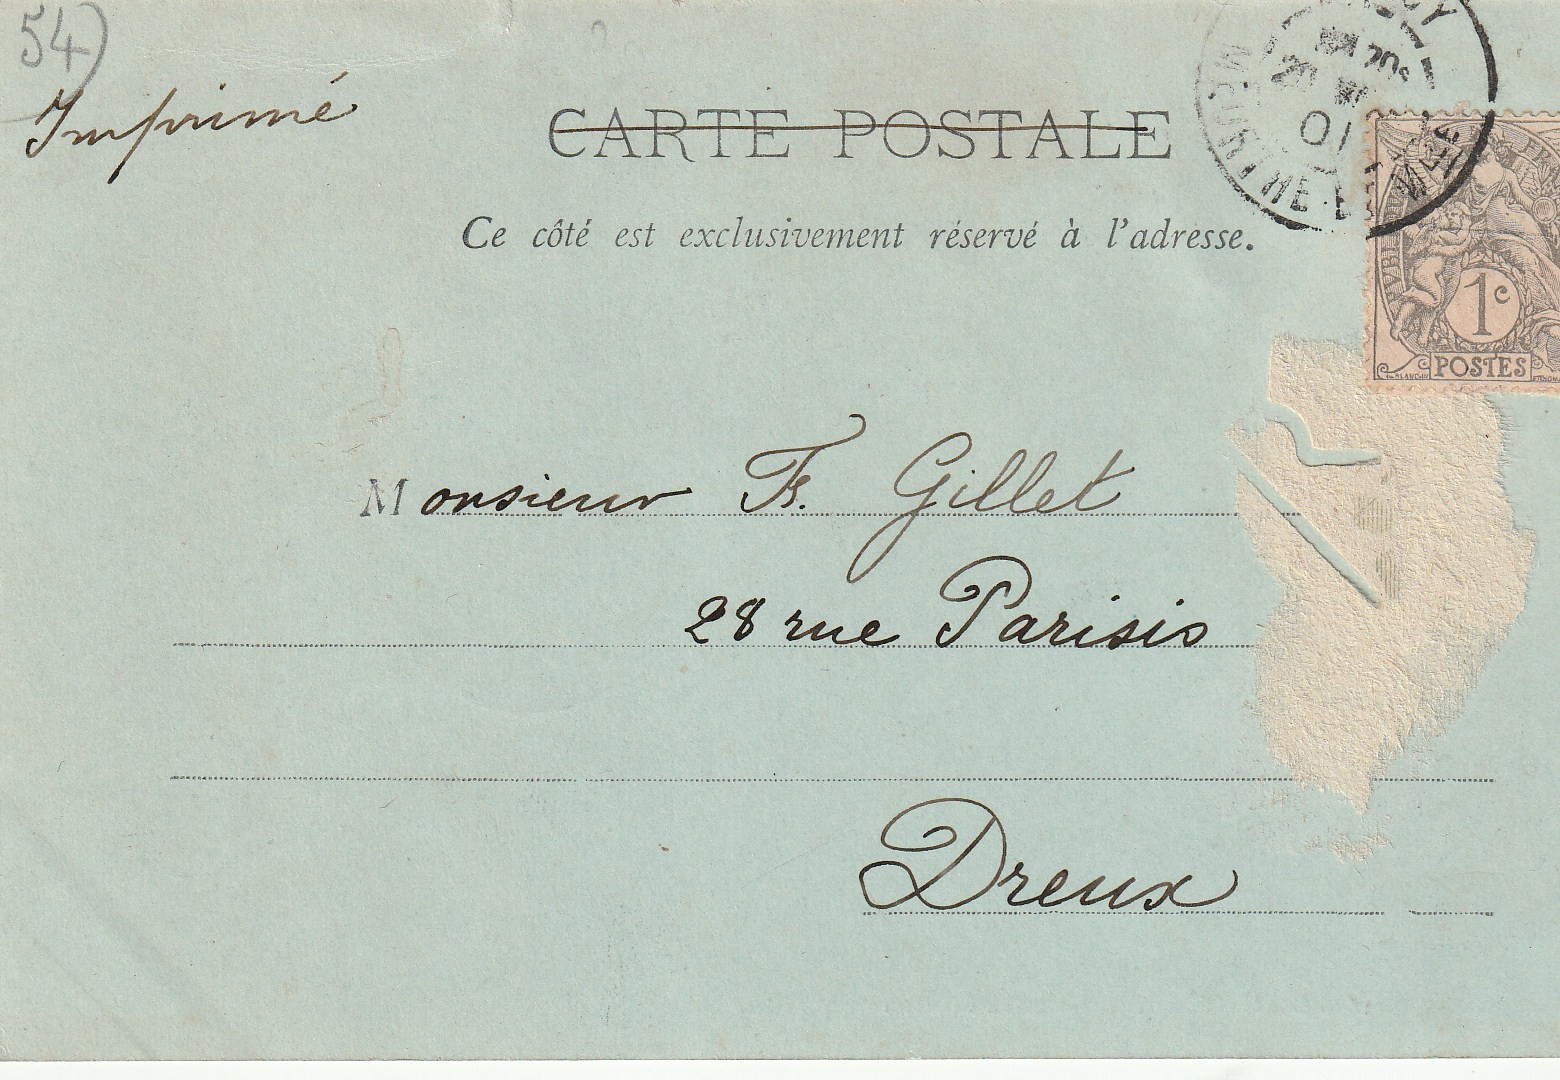 54)
Imprimé
CARTE POSTALE
Ce côté est exclusivement réservé à l'adresse.
01
MEURTHE-ET-M
1c
POSTES
Monsieur Fs. Gillet
28 rue Parisis
Dreux